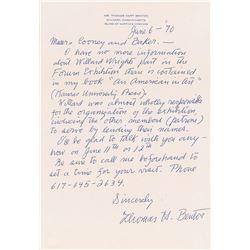 MR. THOMAS HART BENTON
CHILMARK, MASSACHUSETTS
ISLAND OF MARTHA'S VINEYARD
June 6 - 70
Messrs Cooney and Baker. —
I have no more information
about Willard Wright's part in the
Forum Exhibition than is contained
in my book "An American in Art"
(Kansas University Press).
Willard was almost wholly responsible
for the organization of the exhibition
inducing the other members (patrons)
to serve by lending their names.
I'd be glad to talk with you any-
how on June 11th or 12th
Be sure to call me beforehand to
set a time for your visit. Phone
617-645-2634.
Sincerely
Thomas H. Benton